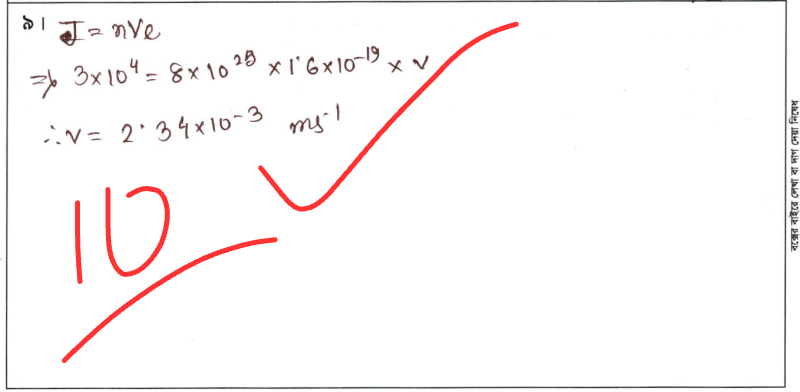 ৯। J = nVe
⇒ 3×10⁴ = 8×10²⁵ × 1.6×10⁻¹⁹ × v
∴ v = 2.34×10⁻³ ms⁻¹
10
বক্সের বাইরে লেখা বা দাগ দেয়া নিষেধ